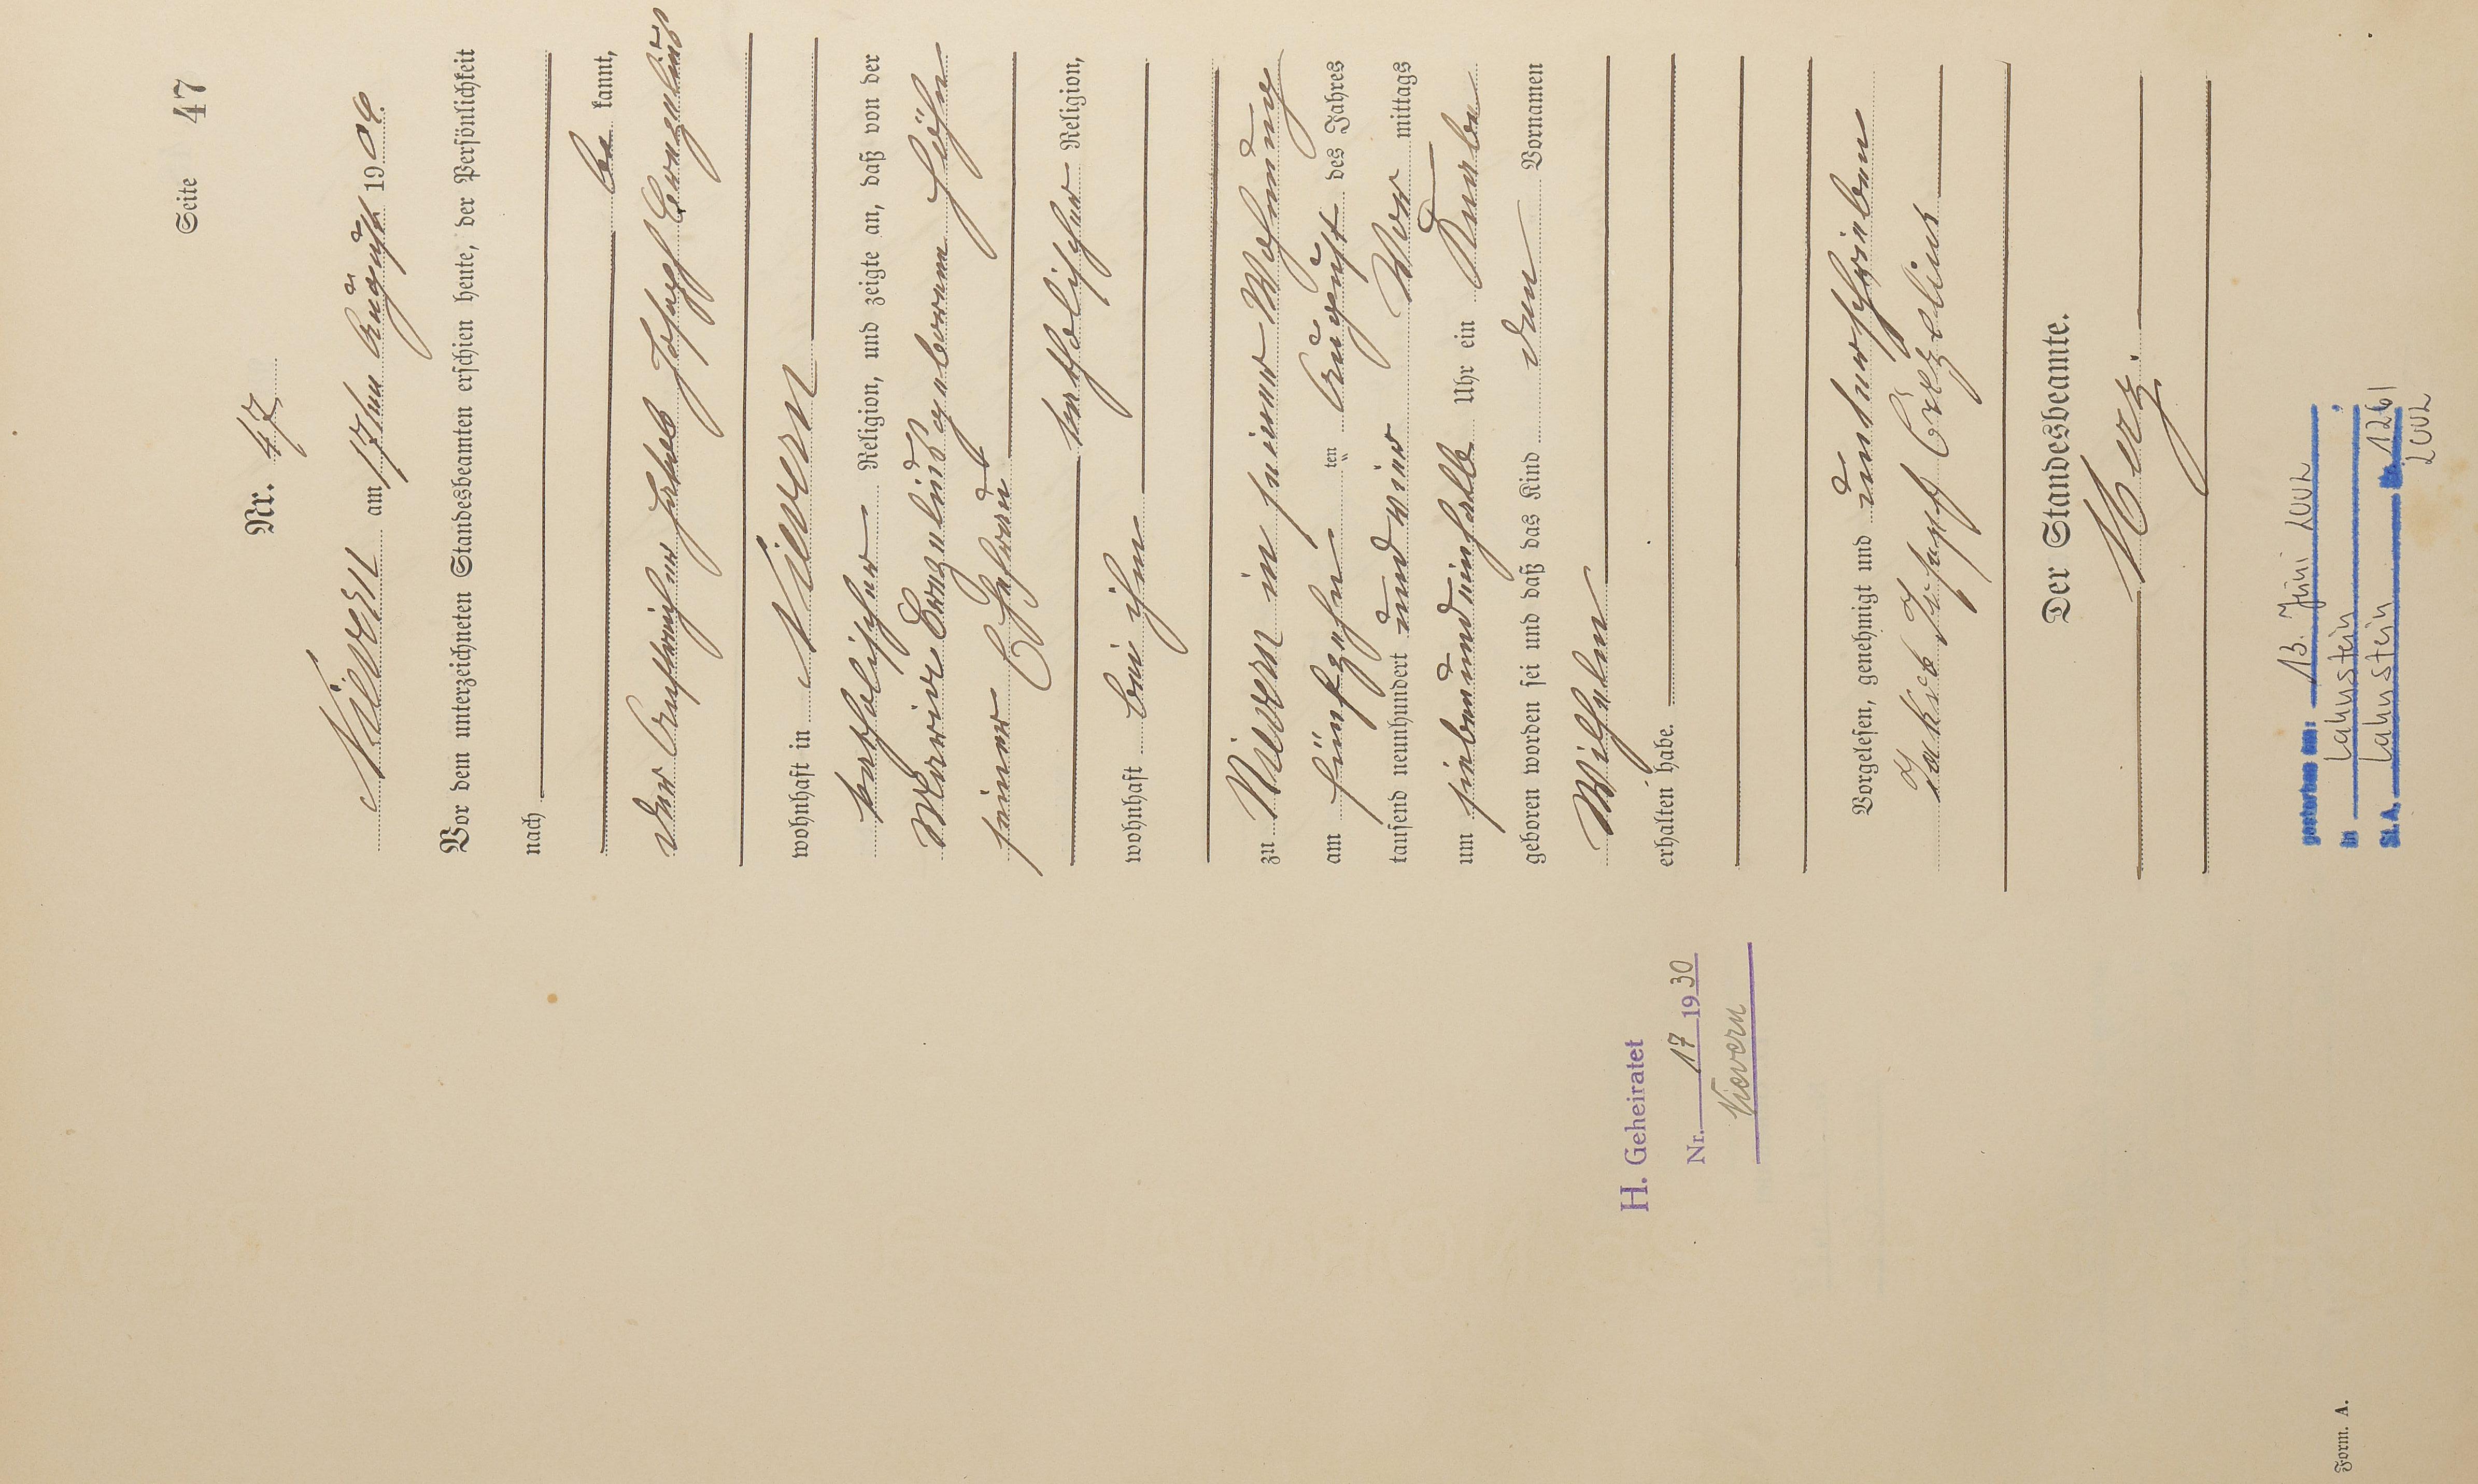 Seite 47
Nr. 47
Nievern am 17ten August 1904.
Vor dem unterzeichneten Standesbeamten erschien heute, der Persönlichkeit
nach
be kannt,
der Anstreicher Jakob Joseph Crezelius
wohnhaft in Nievern
katholischer Religion, und zeigte an, daß von der
Marie Crezelius geborenen Höhn
seiner Ehefrau
katholischer Religion,
wohnhaft bei ihm
zu Nievern in seiner Wohnung
am fünfzehn ten August des Jahres
tausend neunhundert und vier Vor mittags
um siebenundeinhalb Uhr ein Knabe
geboren worden sei und daß das Kind den Vornamen
Wilhelm
erhalten habe.
H. Geheiratet
Nr. 17 1930
Nievern
Vorgelesen, genehmigt und unterschrieben
Jakob Joseph Crezelius
Der Standesbeamte.
Merz.
gestorben am: 13. Juni 2002
in Lahnstein
St.A. Lahnstein Nr. 126/
2002
Form. A.